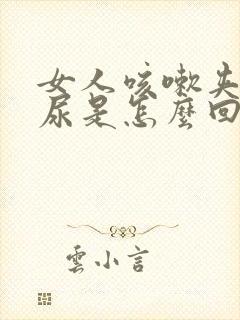 女人咳嗽失
尿是怎麼回
雲小言